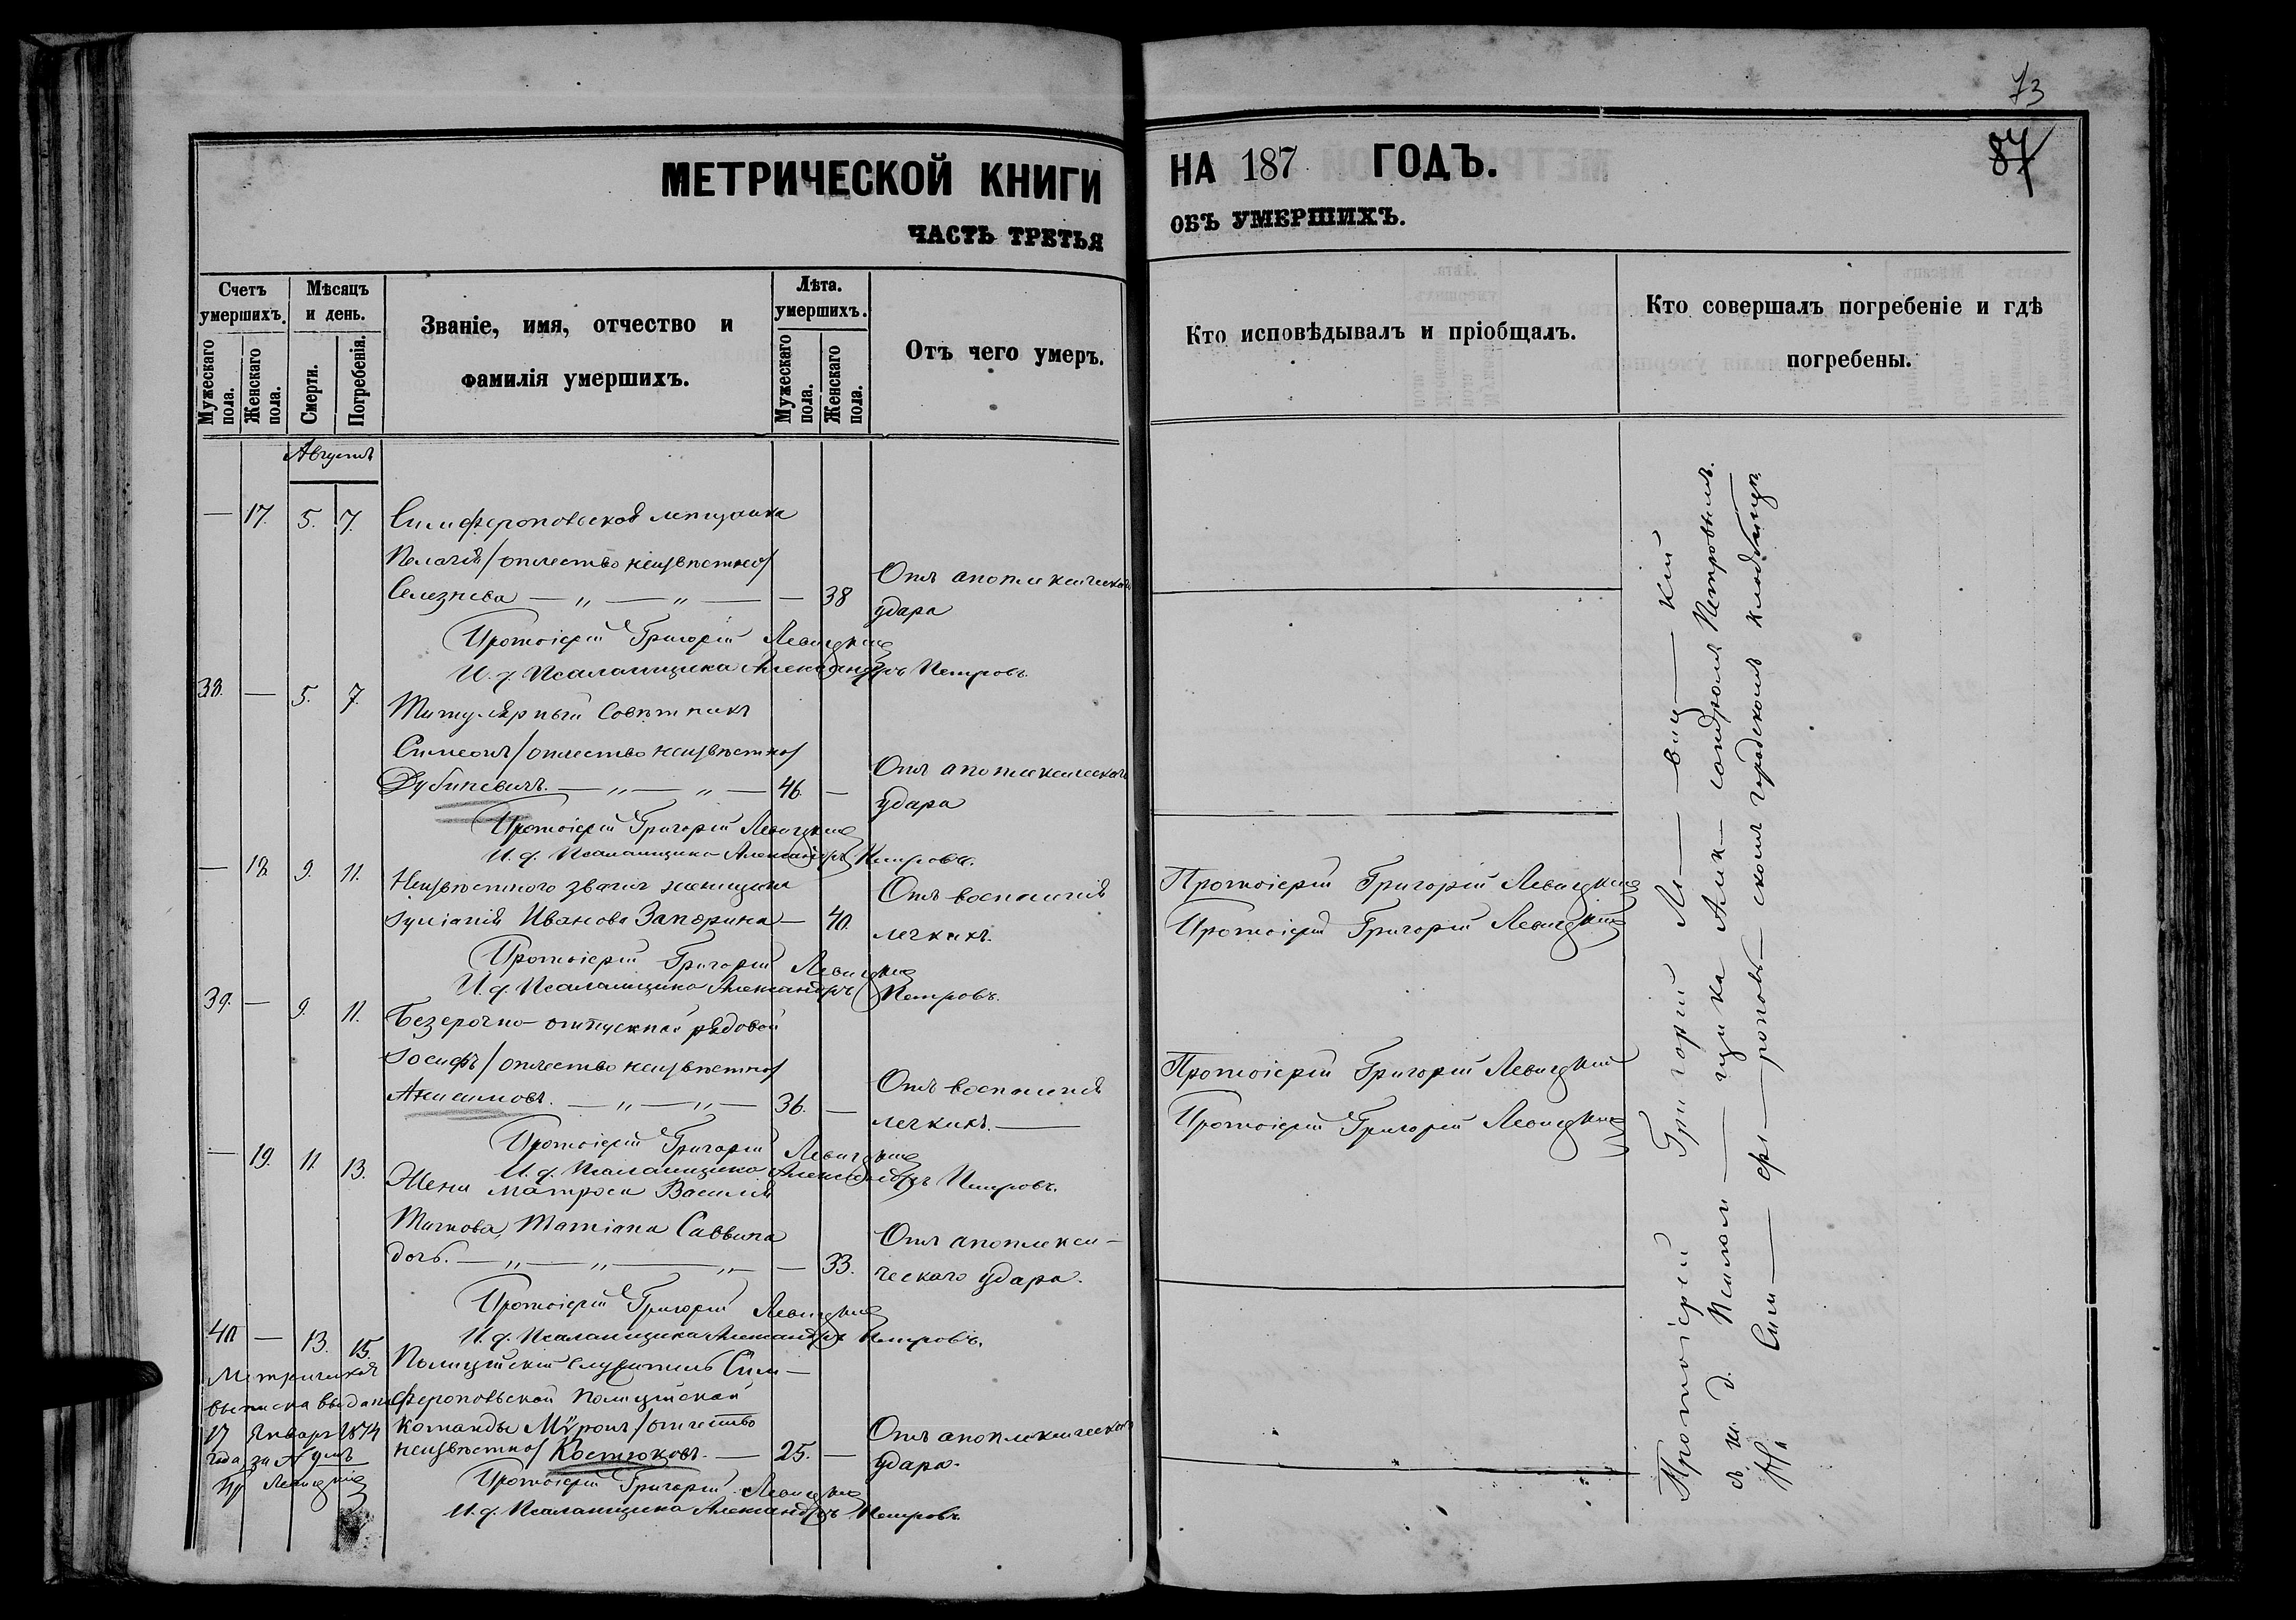 73
87
МЕТРИЧЕСКОЙ КНИГИ НА 187 ГОДЪ.
ЧАСТЬ ТРЕТЬЯ ОБЪ УМЕРШИХЪ.
Счетъ умершихъ.
Мужескаго пола.
Женскаго пола.
Мѣсяцъ и день.
Смерти.
Погребенія.
Званіе, имя, отчество и
фамилія умершихъ.
Лѣта. умершихъ.
Мужескаго пола.
Женскаго пола.
Отъ чего умеръ.
Кто исповѣдывалъ и пріобщалъ.
Кто совершалъ погребеніе и гдѣ
погребены.
Августъ
— 17. 5. 7. Симферопольская мѣщанка
Пелагія /отчество неизвѣстно/
Селезнева — „ — „ — — 38 Отъ апоплексическаго
удара
Протоіерей Григорій Левицкій
И. д. Псаломщика Александръ Петровъ.
38. — 5. 7. Титулярный Совѣтникъ
Симеонъ /отчество неизвѣстно/
— „ — „ — 46. — Отъ апоплексическаго
удара
Протоіерей Григорій Левицкій
И. д. Псаломщика Александръ Петровъ.
— 18. 9. 11. Неизвѣстнаго званія женщина
Іуліанія Иванова Запорина — 40. Отъ воспаленія
легкихъ.
Протоіерей Григорій Левицкій
Протоіерей Григорій Левицкій
Протоіерей Григорій Левицкій
И. д. Псаломщика Александръ Петровъ.
39. — 9. 11. Безсрочно-отпускной рядовой
Іосифъ /отчество неизвѣстно/
Анисимовъ. — „ — „ — 36. — Отъ воспаленія
легкихъ. —
Протоіерей Григорій Левицкій
Протоіерей Григорій Левицкій
Протоіерей Григорій Левицкій
И. д. Псаломщика Александръ Петровъ.
— 19. 11. 13. Жена матроса Василія
Татіана Саввина
дочь. — „ — „ — „ — — 33. Отъ апоплекси-
ческаго удара.
Протоіерей Григорій Левицкій
И. д. Псаломщика Александръ Петровъ.
40 — 13. 15. Полицейскій служитель Сим-
феропольской Полицейской
команды Мѵронъ /отчество
неизвѣстно/ Костюковъ. — 25. — Отъ апоплексическаго
удара.
Протоіерей Григорій Левицкій
И. д. Псаломщика Александръ Петровъ.
Метрическая
выписка выдана
17 Января 1874
года, за №
Пр Левицкій
Протоіерей Григорій Ле— виц— кій
съ и. д. Псалом— щика Алек— сандромъ Петровымъ.
На Сим— фе— рополь— скомъ городскомъ кладбищѣ.